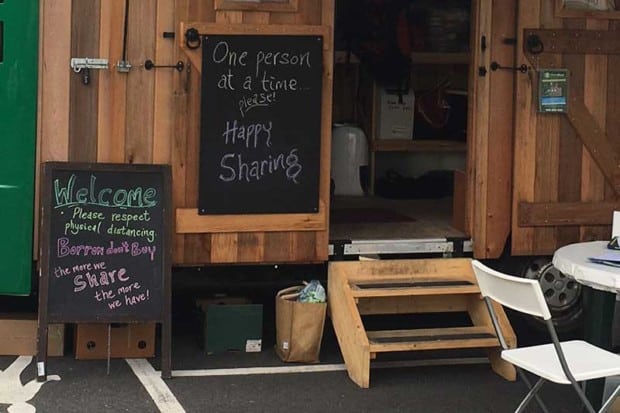 One person
at a time...
please!
Happy
Sharing
Welcome
• Please respect
physical distancing.
Borrow don't Buy
the more we
Share
the more
we have!